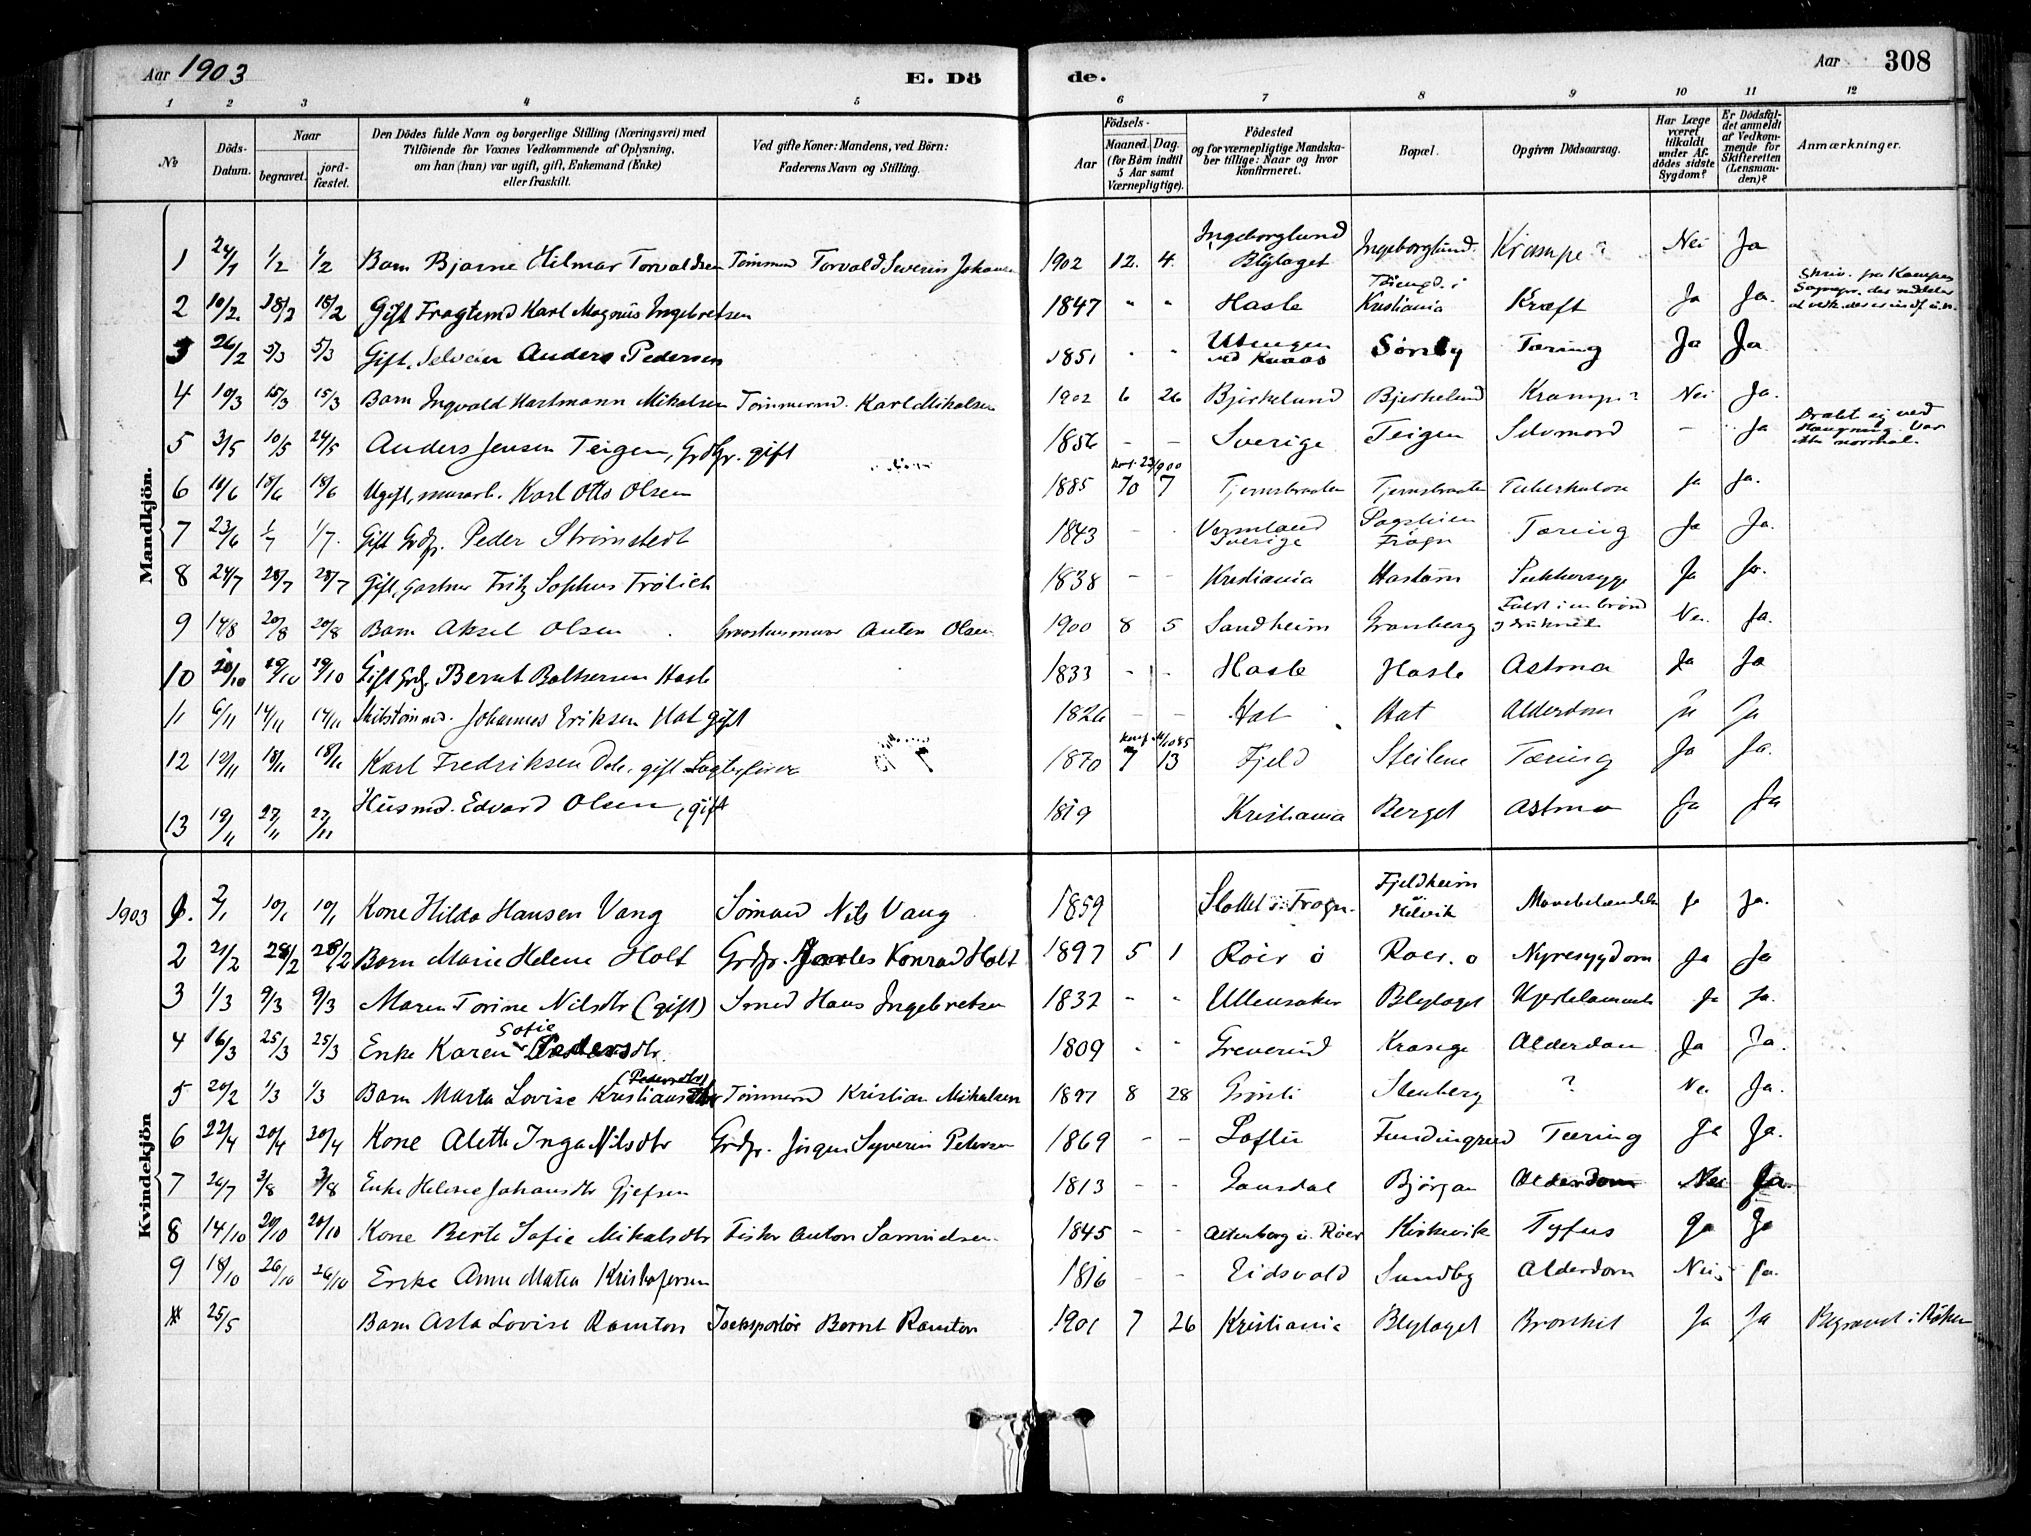 Aar 1903 E. Dö de. Aar 308
1 2 3 4 5 6 7 8 9 10 11 12
No
Döds-Datum.
Naar
begravet.
jord-fæstet.
Den Dödes fulde Navn og borgerlige Stilling (Næringsvei) med
Tilföiende for Voxnes Vedkommende af Oplysning,
om han (hun) var ugift, gift, Enkemand (Enke)
eller fraskilt.
Ved gifte Koner: Mandens, ved Börn:
Faderens Navn og Stilling.
Födsels-
Aar
Maaned. Dag.
(for Börn indtil
5 Aar samt
Værnepligtige).
Födested
og for værnepligtige Mandska-
ber tillige: Naar og hvor
konfirmeret.
Bopæl.
Opgiven Dödsaarsag.
Har Læge
været
tilkaldt
under Af-
dödes sidste
Sygdom?
Er Dödsfal-
det anmeldt
af Vedkom-
mende for
Skifteretten
(Lensman-
den)?
Anmærkninger.
Mandkjön.
1 24/1 1/2 1/2 Barn Bjarne Hilmar Torvaldsen Tømmermd Torvald Severin Johansen 1902 12. 4. Ingeborglund Blylaget Ingeborglund. Krampe? Nei Ja
2 10/2. 18/2 18/2 Gift Fragtemd Karl Magnus Ingebretsen 1847 " " Hasle Tøiengd. i Kristiania Kræft Ja Ja.
3 26/2 5/3 5/3 Gift. Selveier Anders Pedersen 1851 " " Utengen ved Knaas Sørby Tæring Ja Ja
4 10/3 15/3 15/3 Barn Ingvald Hartmann Mikalsen Tømmermd. Karl Mikalsen 1902 6 26 Bjerkelund Bjerkelund Krampe? Nei Ja.
5 3/5 10/5 24/5 Anders Jensen Teigen, Grdbr. gift 1856 - - Sverige Teigen Selvmord - Ja Dræbt sig ved Hængning. Var ikke normal.
6 10/6 18/6 18/6 Ugift, murarb. Karl Otto Olsen 1885 10 7 Tjernsbraaten Tjernsbraaten Tuberkulose Ja Ja.
7 23/6 1/7 1/7. Gift Grdbr. Peder Strømstedt 1843 - - Vermland Sverige Frogn Tæring Ja Ja.
8 24/7 28/7 28/7 Gift, gartner Fritz Sophus Frølich 1838 - - Kristiania Havtorn Sukkersyge Ja Ja.
9 14/8 20/8 20/8 Barn Aksel Olsen Anton Olsen 1900 8 5 Sandheim Granberg Faldt i en brønd & druknet Nei Ja.
10 10/10 19/10 19/10 Gift Grdbr. Bernt Baltsersen Hasle 1833 - - Hasle Hasle Astma Ja Ja
11 6/11 14/11 14/11 Skibstømmd. Johannes Eriksen Hat gift 1826 - - Hat Hat Alderdom Ja Ja
12 12/11 18/11 18/11 Karl Fredriksen Dele, gift 1870 7 13 Fjeld Steilene Tæring Ja Ja.
13 19/11 27/11 27/11 Husmd. Edvard Olsen, gift 1819 Kristiania Berget Astma Ja Ja
Kvindekjön
1903 1. 2/1 10/1 10/1 Kone Hilda Hansen Vang Sømand Nils Vang 1859 Slottet i Frogn. Fjeldheim i Helvik Mavebetændelse Ja Ja.
2 21/2 28/2 28/2 Barn Marie Helene Holt Grdbr. Konrad Holt 1897 5 1 Roer ø Roer. ø Nyresygdom Ja Ja
3 1/3 9/3 9/3 Maren Torine Nilsdtr (gift) Smed Hans Ingebretsen 1832 - " Ullensaker Blylaget Hjertelammelse Ja Ja.
4 16/3 25/3 25/3 Enke Karen Sofie Pedersdtr. 1809 " " Greverud Krange Alderdom Ja Ja.
5 20/2 1/3 1/3 Barn Marta Lovise Kristiansdtr (Pedersdtr) Tømmermd Kristian Mikalsen 1897 8 28 Grønli Stenberg ? Nei Ja.
6 22/4 20/4 20/4 Kone Alette Inga Nilsdtr Grdbr. Jørgen Syverin Petersen 1869 - - Loftu Fundingrud Tæring Ja Ja.
7 26/7 3/8 3/8 Enke Helene Johansdtr Gjefsen 1813 - - Lausdal Bjørgan Alderdom Nei Ja.
8 14/10 20/10 20/10 Kone Berte Sofie Mikalsdtr Fisker Anton Samuelsen 1845 - - Altenborg i. Roer Kirkevik Tyfus Ja Ja
9 18/10 26/10 26/10 Enke Anne Matea Kristofersen 1816 - - Eidsvold Sundby Alderdom Nei Ja.
25/5 Barn Asta Lovise Ramton Bernt Ramton 1901 7 26 Kristiania Blylaget Bronkit Ja Ja Begravet i Røken